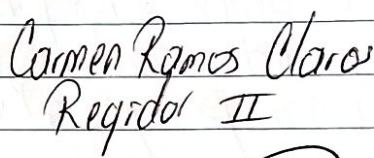 Carmen Ramos Claros
Regidor II